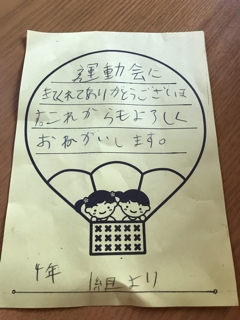 運動会に
きてくれてありがとうございま
すこれからもよろしく
おねがいします。
4年
1組より